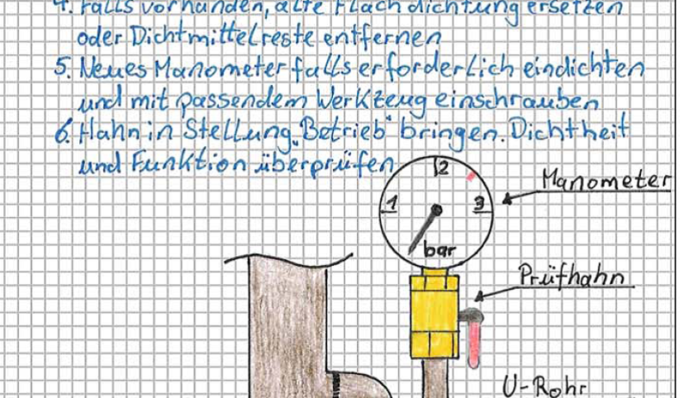 4. Falls vorhanden, alte Flachdichtung ersetzen
oder Dichtmittelreste entfernen
5. Neues Manometer falls erforderlich eindichten
und mit passendem Werkzeug einschrauben
6. Hahn in Stellung "Betrieb" bringen. Dichtheit
und Funktion überprüfen
1
2
3
bar
Manometer
Prüfhahn
U-Rohr